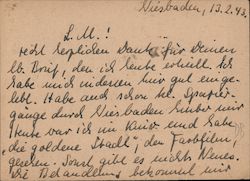 Wiesbaden, 13.2.43.
L. M.!
recht herzlichen Dank für Deinen
lb. Brief, den ich heute erhielt. Ich
habe mich indessen hier gut einge-
lebt. Habe auch schon Spazier-
gänge durch Wiesbaden hinter mir
Heute war ich im Kino und habe
„die goldene Stadt“, den Farbfilm,
gesehen. Sonst gibt es nichts Neues.
Die Behandlung bekommt mir